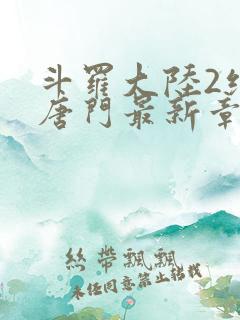 斗羅大陸2絕
唐門最新章
絲帶飄飄
未經同意禁止轉載